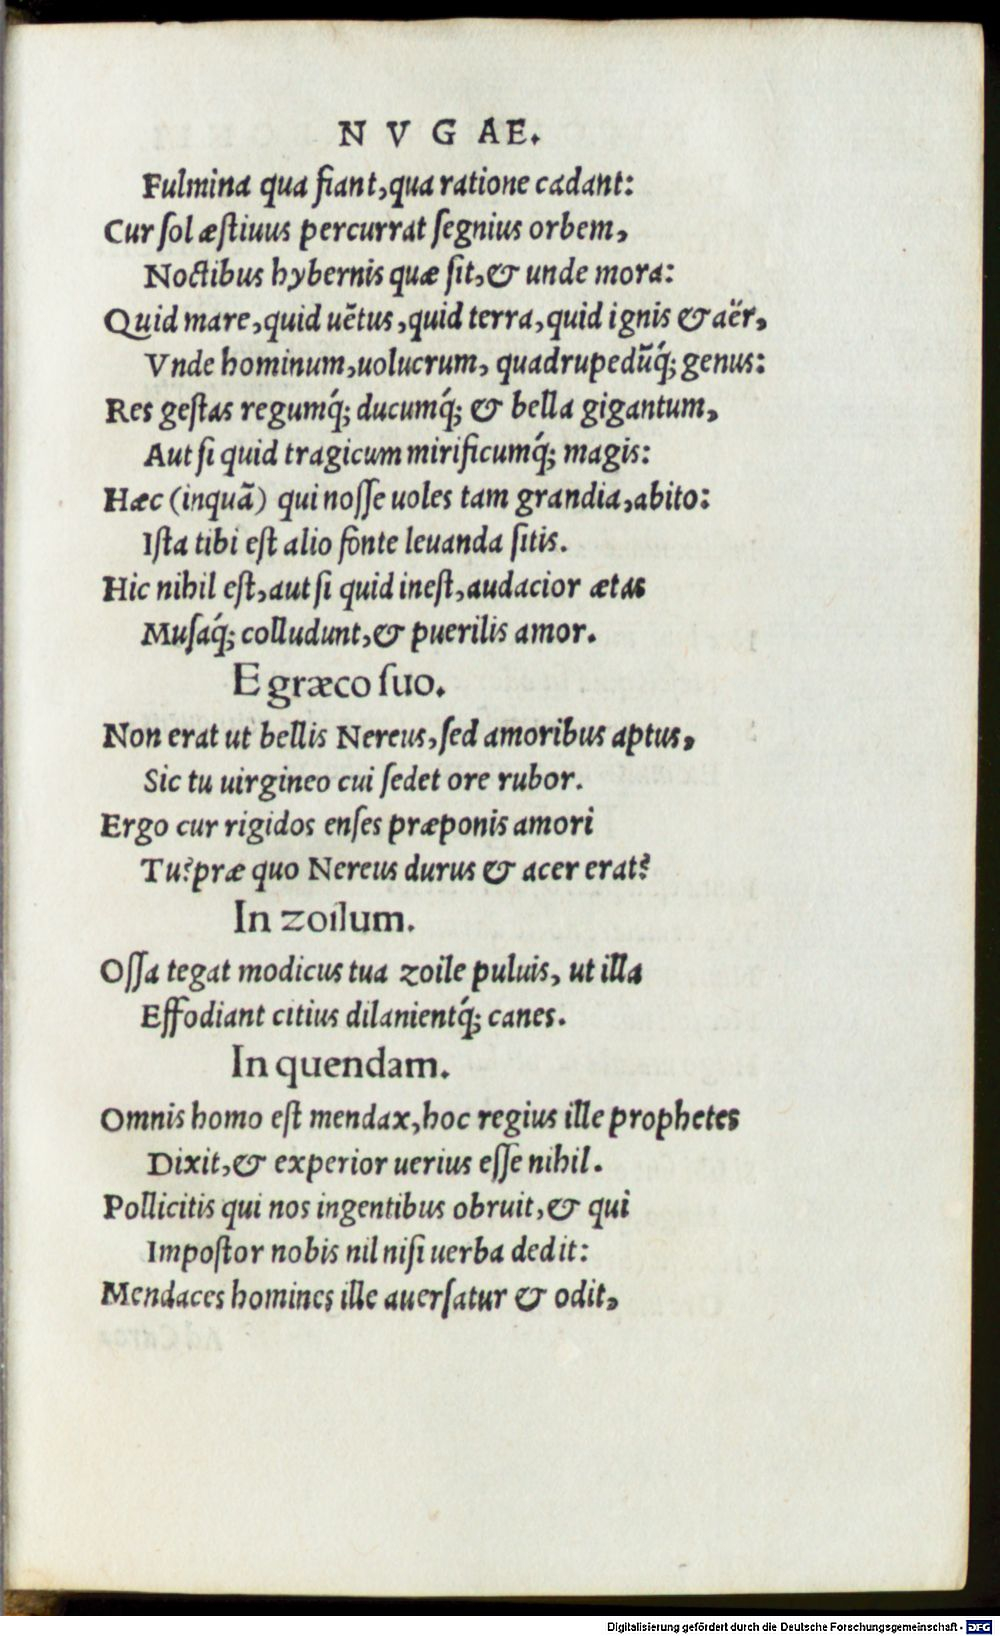 N V G AE.
Fulmina qua fiant, qua ratione cadant:
Cur ſol æſtiuus percurrat ſegnius orbem,
Noctibus hybernis quæ ſit, & unde mora:
Quid mare, quid uẽtus, quid terra, quid ignis & aër,
Vnde hominum, uolucrum, quadrupedũq́; genus:
Res geſtas regumq́; ducumq́; & bella gigantum,
Aut ſi quid tragicum mirificumq́; magis:
Hæc (inquã) qui noſſe uoles tam grandia, abito:
Iſta tibi eſt alio fonte leuanda ſitis.
Hic nihil eſt, aut ſi quid ineſt, audacior ætas
Muſaq́; colludunt, & puerilis amor.
E græco ſuo.
Non erat ut bellis Nereus, ſed amoribus aptus,
Sic tu uirgineo cui ſedet ore rubor.
Ergo cur rigidos enſes præponis amori
Tu? præ quo Nereus durus & acer erat?
In zoilum.
Oſſa tegat modicus tua zoile puluis, ut illa
Effodiant citius dilanientq́; canes.
In quendam.
Omnis homo eſt mendax, hoc regius ille prophetes
Dixit, & experior uerius eſſe nihil.
Pollicitis qui nos ingentibus obruit, & qui
Impoſtor nobis nil niſi uerba dedit:
Mendaces homines ille auerſatur & odit,
Digitalisierung gefördert durch die Deutsche Forschungsgemeinschaft - DFG